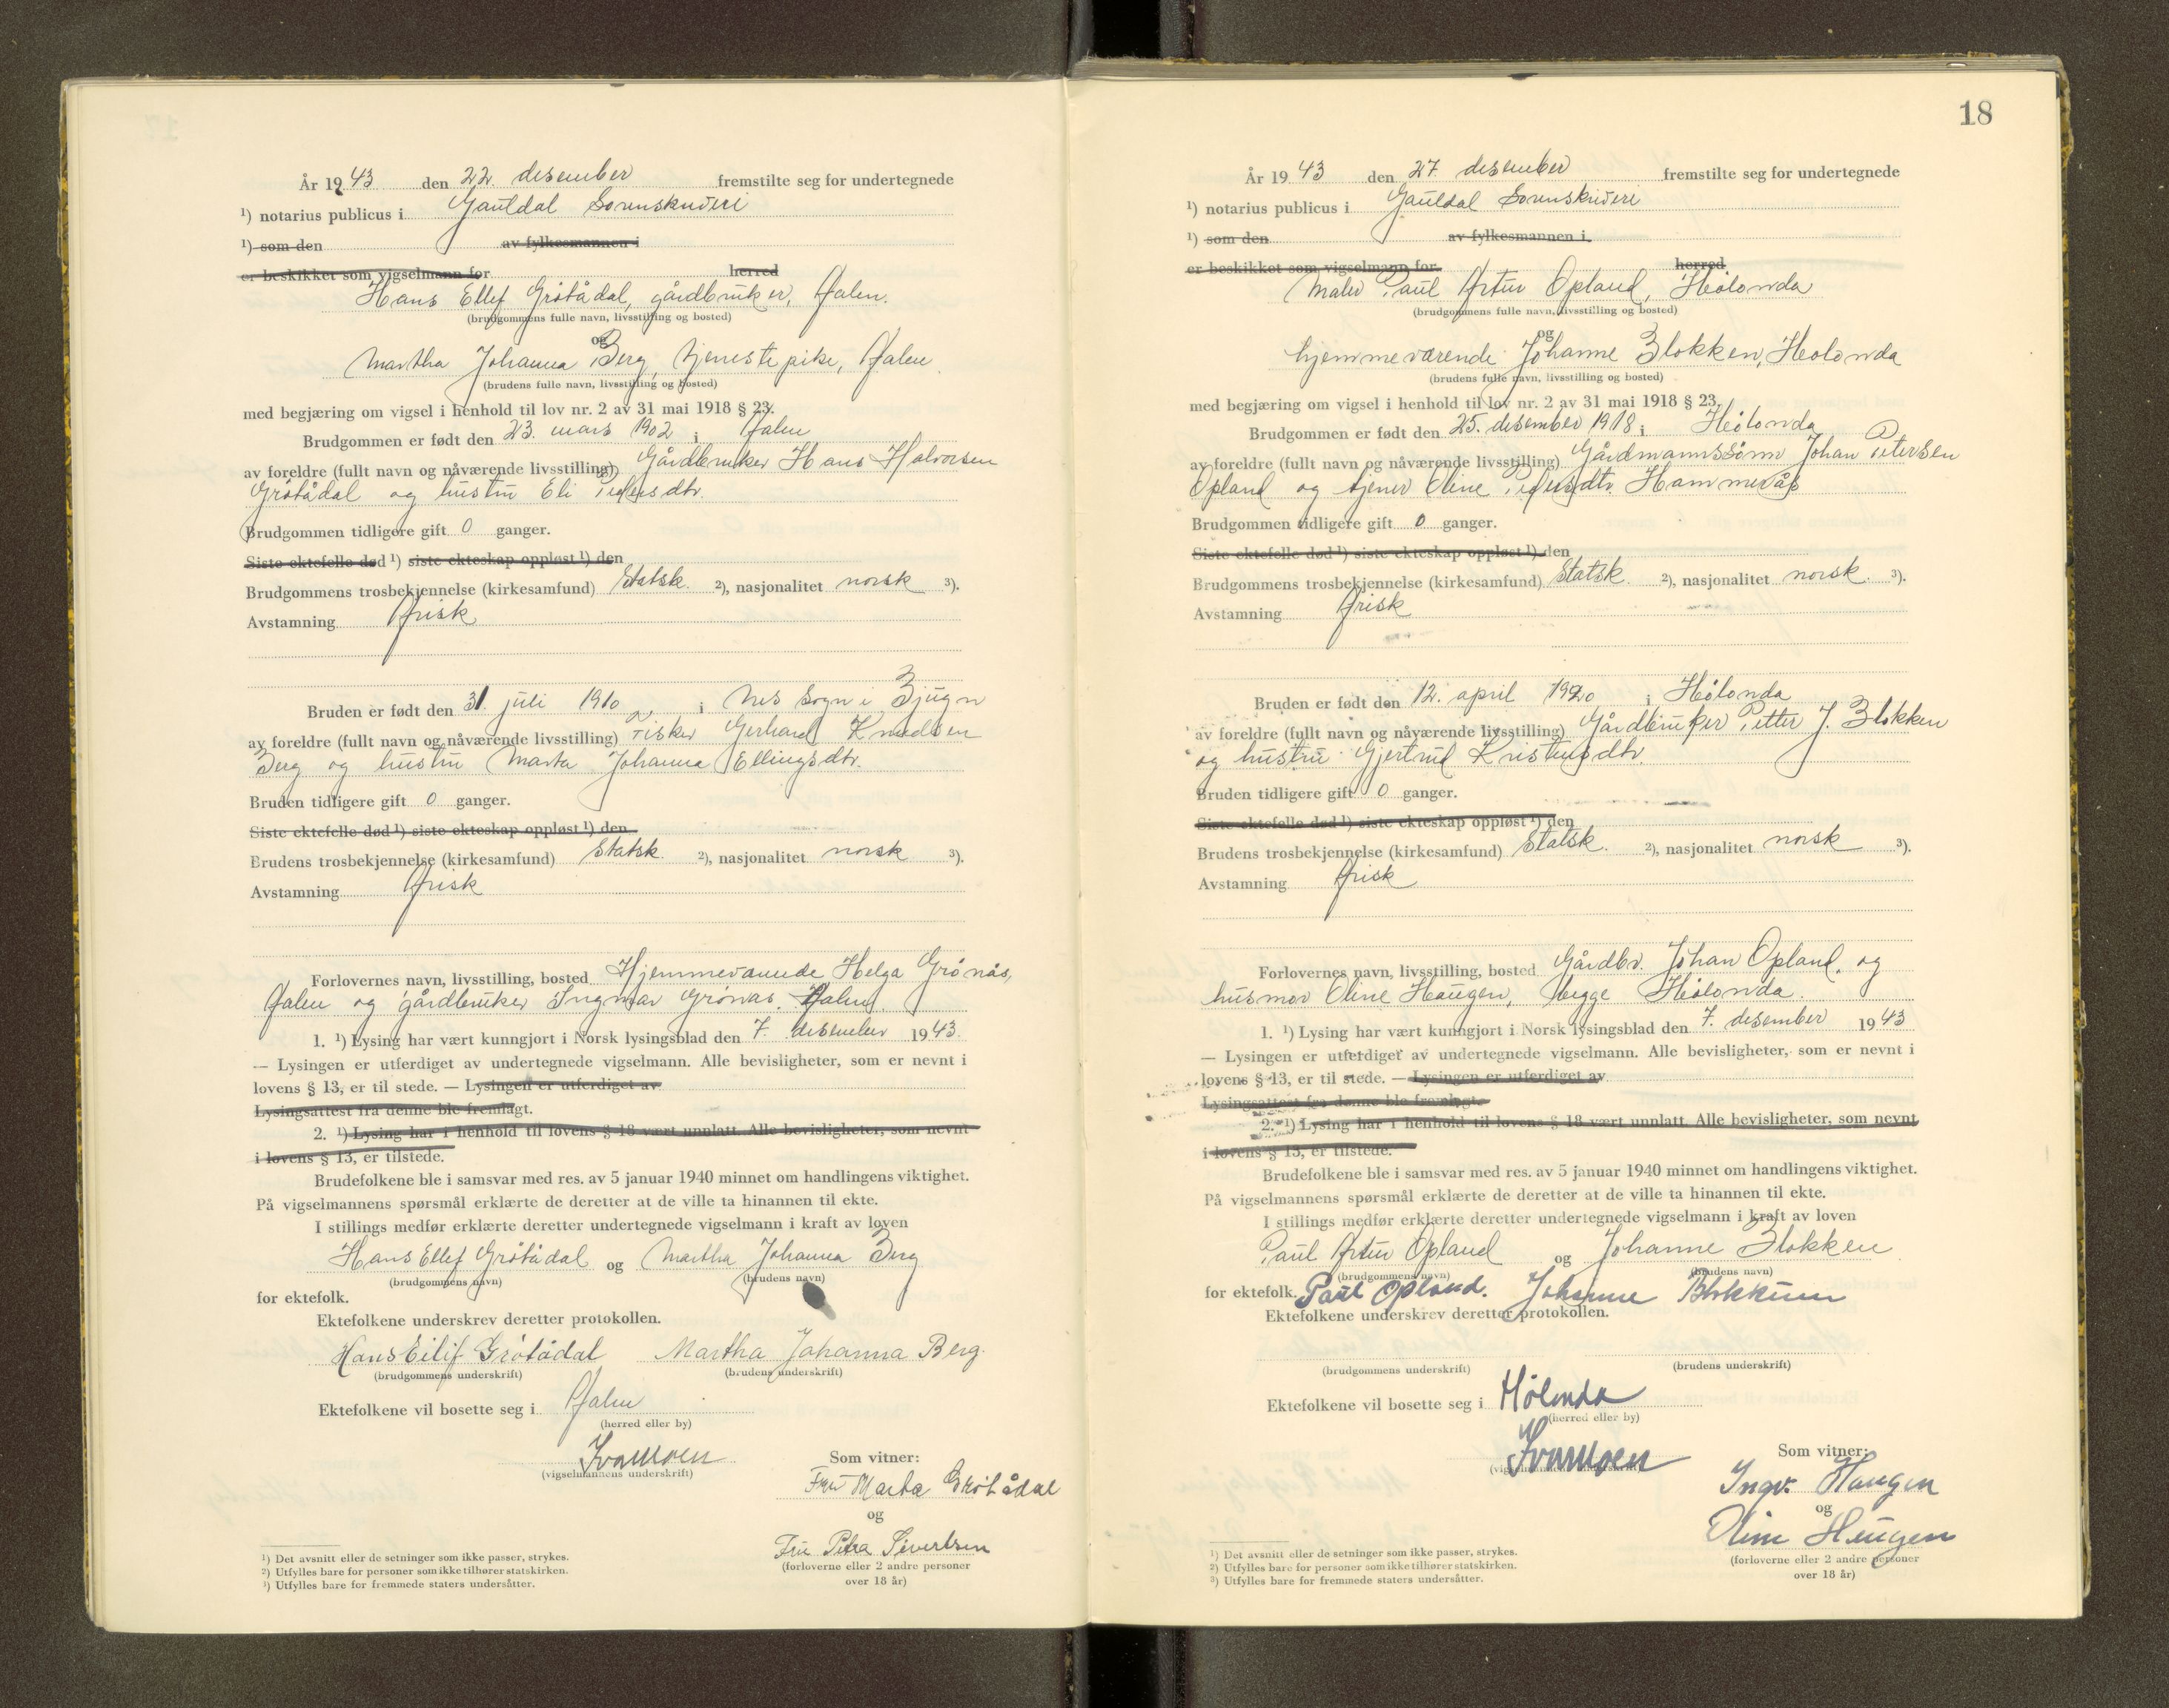 År 1943 den 22. desember fremstilte seg for undertegnede
¹) notarius publicus i Gauldal Sorenskriveri
¹) som den av fylkesmannen i
er beskikket som vigselmann for herred
Hans Ellef Grötådal, gårdbruker, Ålen.
(brudgommens fulle navn, livsstilling og bosted)
og
Martha Johanna Berg, tjenestepike, Ålen.
(brudens fulle navn, livsstilling og bosted)
med begjæring om vigsel i henhold til lov nr. 2 av 31 mai 1918 § 23.
Brudgommen er født den 23. mars 1902 i Ålen
av foreldre (fullt navn og nåværende livsstilling) Gårdbruker Hans Halvorsen
Grötådal og hustru Eli Pedersdtr.
Brudgommen tidligere gift 0 ganger.
Siste ektefelle død ¹) siste ekteskap oppløst ¹) den
Brudgommens trosbekjennelse (kirkesamfund) Statsk. ²), nasjonalitet norsk ³).
Avstamning Arisk
Bruden er født den 31. juli 1910 i Nes Sogn i Bjugn
av foreldre (fullt navn og nåværende livsstilling) Fisker Gerhard Knudsen
Berg og hustru Marta Johanna Ellingsdtr.
Bruden tidligere gift 0 ganger.
Siste ektefelle død ¹) siste ekteskap oppløst ¹) den
Brudens trosbekjennelse (kirkesamfund) Statsk. ²), nasjonalitet norsk ³).
Avstamning Arisk
Forlovernes navn, livsstilling, bosted Hjemmeværende Helga Grönås,
Ålen og gårdbruker Ingmar Grönås. Ålen.
1. ¹) Lysing har vært kunngjort i Norsk lysingsblad den 7. desember 1943.
— Lysingen er utferdiget av undertegnede vigselmann. Alle bevisligheter, som er nevnt i
lovens § 13, er til stede. — Lysingen er utferdiget av
Lysingsattest fra denne ble fremlagt.
2. ¹) Lysing har i henhold til lovens § 18 vært unnlatt. Alle bevisligheter, som nevnt
i lovens § 13, er tilstede.
Brudefolkene ble i samsvar med res. av 5 januar 1940 minnet om handlingens viktighet.
På vigselmannens spørsmål erklærte de deretter at de ville ta hinannen til ekte.
I stillings medfør erklærte deretter undertegnede vigselmann i kraft av loven
Hans Ellef Grötådal og Martha Johanna Berg
(brudgommens navn) (brudens navn)
for ektefolk.
Ektefolkene underskrev deretter protokollen.
Hans Eilif Grötådal Martha Johanna Berg.
(brudgommens underskrift) (brudens underskrift)
Ektefolkene vil bosette seg i Ålen
(herred eller by)
(vigselmannens underskrift)
Som vitner:
Fru Marta Grötådal
og
Fru Petra Sivertsen
(forloverne eller 2 andre personer
over 18 år)
¹) Det avsnitt eller de setninger som ikke passer, strykes.
²) Utfylles bare for personer som ikke tilhører statskirken.
³) Utfylles bare for fremmede staters undersåtter.
18
År 1943 den 27. desember fremstilte seg for undertegnede
¹) notarius publicus i Gauldal Sorenskriveri
¹) som den av fylkesmannen i
er beskikket som vigselmann for herred
Maler Paul Artur Opland, Hölonda
(brudgommens fulle navn, livsstilling og bosted)
og
hjemmeværende Johanne Blokken, Hölonda
(brudens fulle navn, livsstilling og bosted)
med begjæring om vigsel i henhold til lov nr. 2 av 31 mai 1918 § 23.
Brudgommen er født den 25. desember 1918 i Hölonda
av foreldre (fullt navn og nåværende livsstilling) Gårdmannssönn Johan Petersen
Opland og tjener Oline Pedersdtr. Hammerås
Brudgommen tidligere gift 0 ganger.
Siste ektefelle død ¹) siste ekteskap oppløst ¹) den
Brudgommens trosbekjennelse (kirkesamfund) Statsk. ²), nasjonalitet norsk. ³).
Avstamning Arisk
Bruden er født den 12. april 1920 i Hölonda
av foreldre (fullt navn og nåværende livsstilling) Gårdbruker Petter J. Blokken
og hustru Gjertrud Kristensdtr.
Bruden tidligere gift 0 ganger.
Siste ektefelle død ¹) siste ekteskap oppløst ¹) den
Brudens trosbekjennelse (kirkesamfund) Statsk. ²), nasjonalitet norsk ³).
Avstamning Arisk
Forlovernes navn, livsstilling, bosted Gårdbr. Johan Opland, og
husmor Oline Haugen, begge Hölonda.
1. ¹) Lysing har vært kunngjort i Norsk lysingsblad den 7. desember 1943
— Lysingen er utferdiget av undertegnede vigselmann. Alle bevisligheter, som er nevnt i
lovens § 13, er til stede. — Lysingen er utferdiget av
Lysingsattest fra denne ble fremlagt.
2. ¹) Lysing har i henhold til lovens § 18 vært unnlatt. Alle bevisligheter, som nevnt
i lovens § 13, er tilstede.
Brudefolkene ble i samsvar med res. av 5 januar 1940 minnet om handlingens viktighet.
På vigselmannens spørsmål erklærte de deretter at de ville ta hinannen til ekte.
I stillings medfør erklærte deretter undertegnede vigselmann i kraft av loven
Paul Artur Opland og Johanne Blokken
(brudgommens navn) (brudens navn)
for ektefolk. Paul Opland. Johanne Blokkum
Ektefolkene underskrev deretter protokollen.
(brudgommens underskrift) (brudens underskrift)
Ektefolkene vil bosette seg i Hölonda
(herred eller by)
(vigselmannens underskrift)
Som vitner:
Ingv. Haugen
og
Oline Haugen
(forloverne eller 2 andre personer
over 18 år)
¹) Det avsnitt eller de setninger som ikke passer, strykes.
²) Utfylles bare for personer som ikke tilhører statskirken.
³) Utfylles bare for fremmede staters undersåtter.